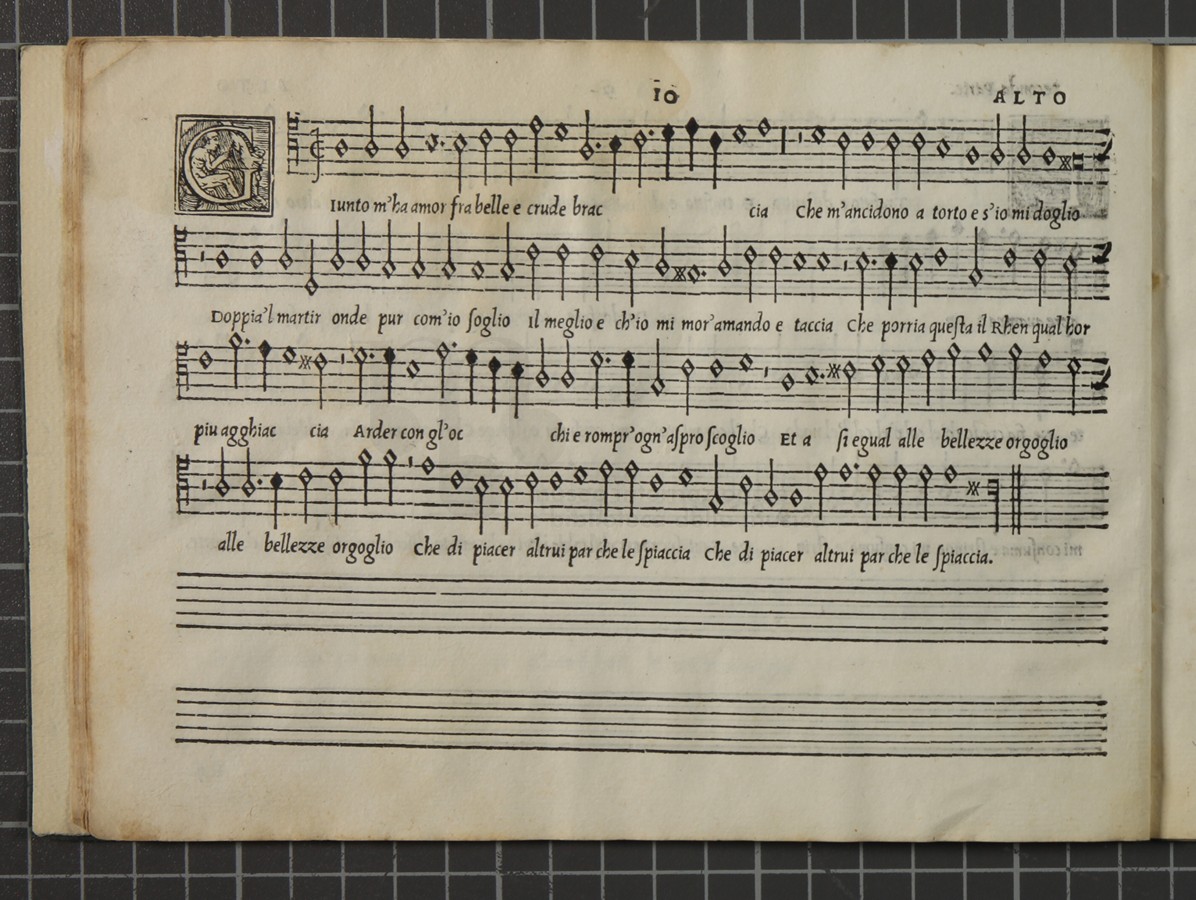 10 ALTO
GIunto m'ha amor fra belle e crude brac cia Che m'ancidono a torto e s'io mi doglio
Doppia'l martir onde pur com'io ſoglio Il meglio e ch'io mi mor'amando e taccia Che porria queſta il Rhen qual hor
piu agghiac cia Arder con gl'oc chi e rompr'ogn'aſpro ſcoglio Et a ſi egual alle bellezze orgoglio
alle bellezze orgoglio Che di piacer altrui par che le ſpiaccia Che di piacer altrui par che le ſpiaccia.